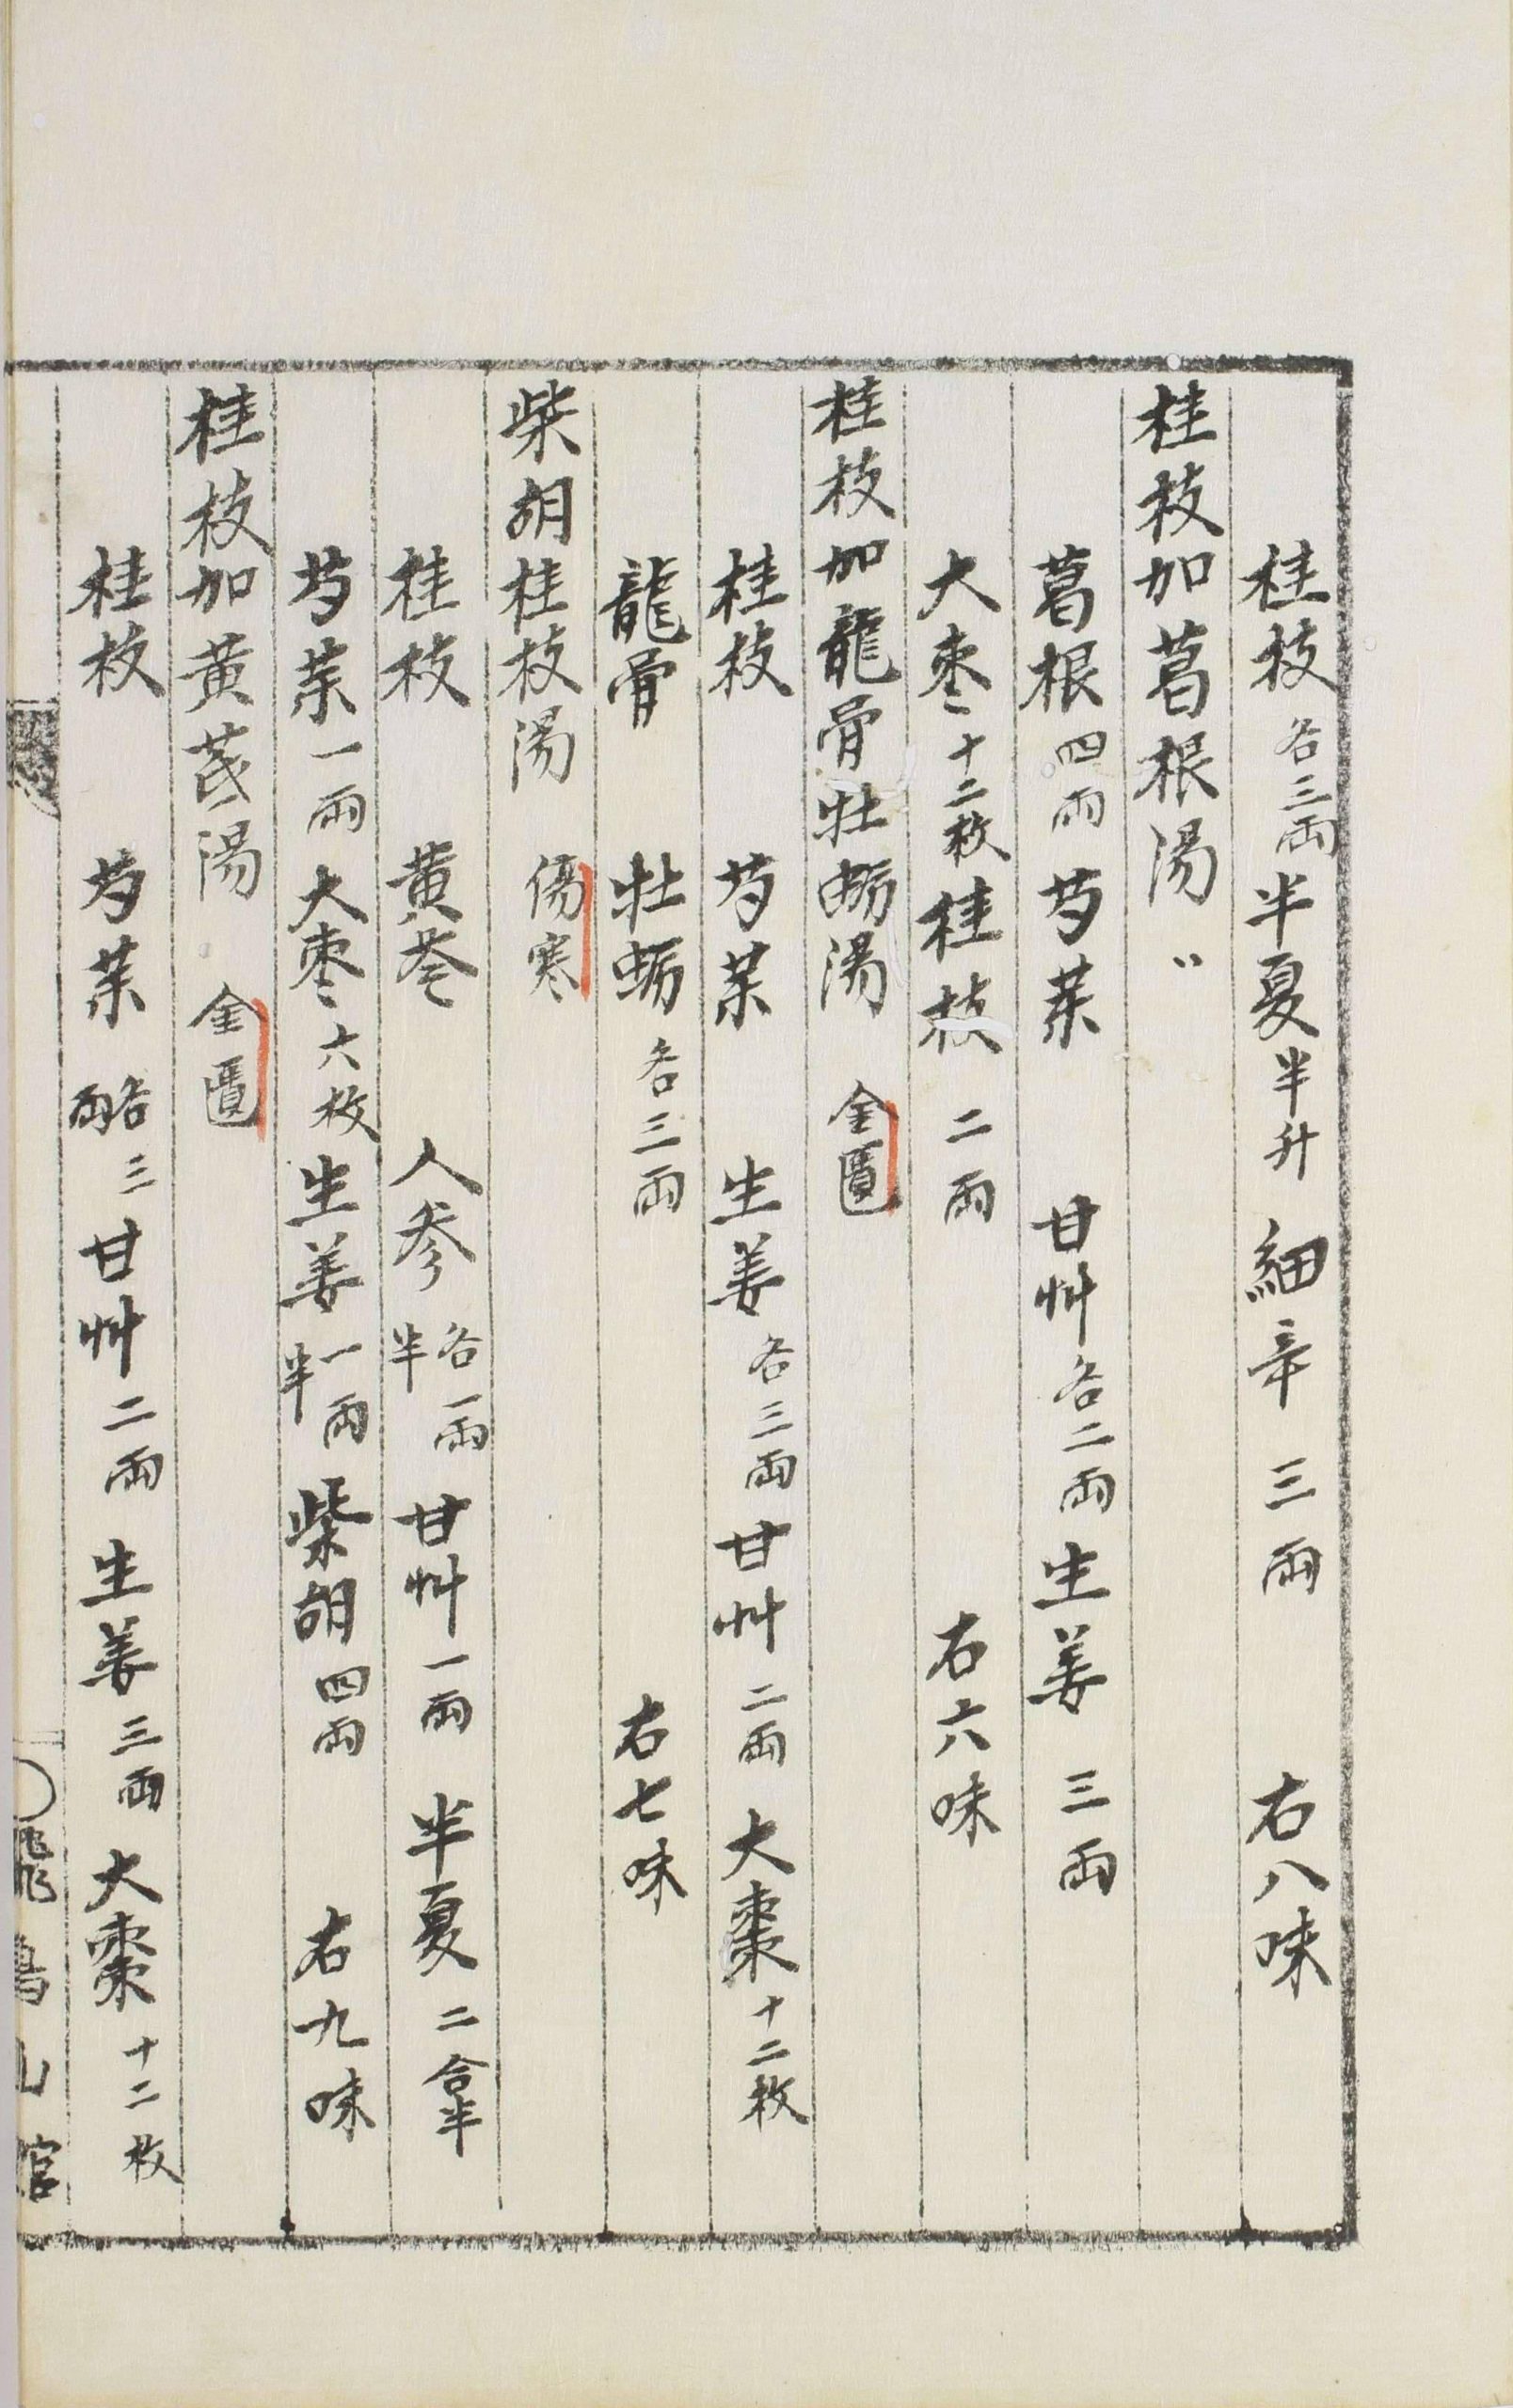 桂枝各三兩半夏半升細辛三兩　右八味
桂枝加葛根湯〻
葛根四兩芍藥　甘艸各二兩生姜三兩
大枣十二枚桂枝二兩　右六味
桂枝加龍骨牡蛎湯　金匱
桂枝　芍茱　生姜各三兩甘艸二兩大棗十二枚
龍骨　牡蛎各三兩　右七味
柴胡桂枝湯　傷寒
桂枝　黄芩　人参各一兩半甘艸一兩半夏二合半
芍茱一兩大枣六枚生姜一兩半柴胡四兩　右九味
桂枝加黄芪湯　金匱
桂枝　芍茱各三兩甘艸二兩生姜三兩大棗十二枚
飛鳥山館